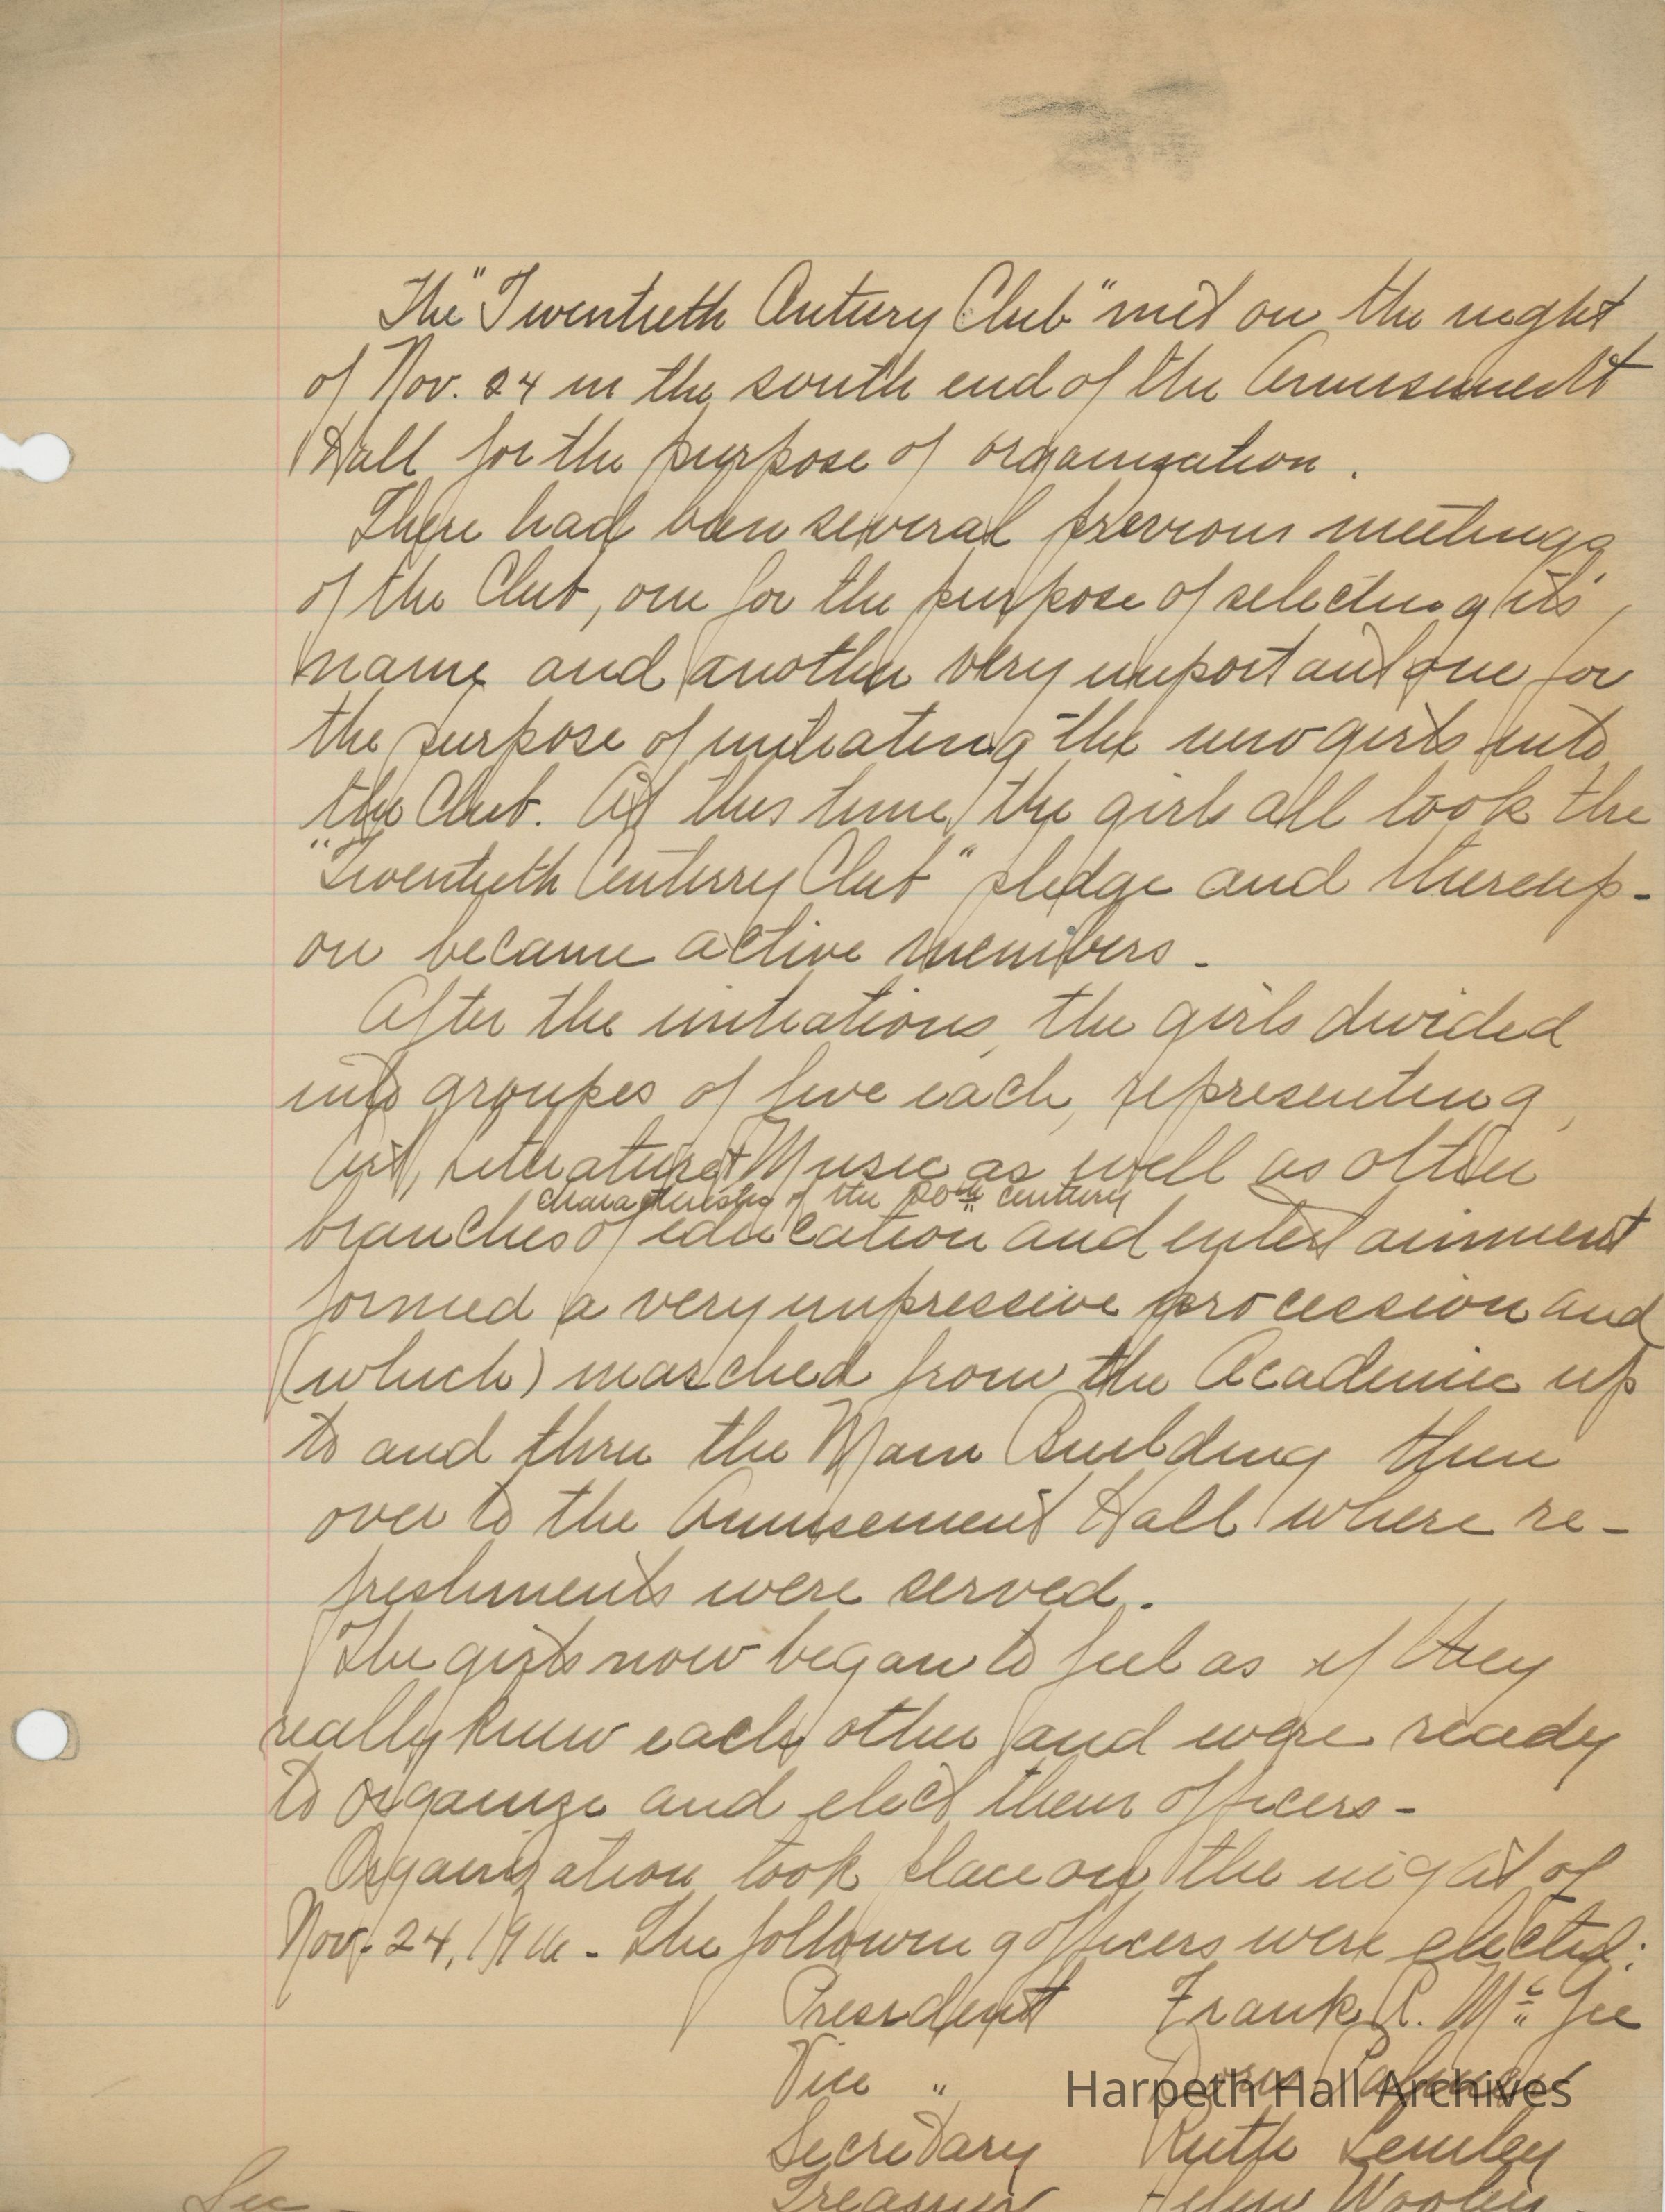 The "Twentieth Century Club" met on the night
of Nov. 24 in the south end of the Amusement
Hall for the purpose of organization.
There had been several previous meetings
of the Club, one for the purpose of selecting its'
name and another very important one for
the purpose of initiating the new girls into
the Club. At this time, the girls all took the
"Twentieth Century Club" pledge and thereup-
on became active members.
After the initiations, the girls divided
into groupes of five each, representing,
Art, Literature & Music as well as other
characteristic of the 20th century
branches of education and entertainment
formed a very impressive procession and
(which) marched from the Academic up
to and thru the Main Building then
over to the Amusement Hall where re-
freshments were served.
The girls now began to feel as if they
really knew each other and were ready
to organize and elect their officers-
Organization took place on the night of
Nov. 24, 19 - The following officers were elected:
President Frank R. Mc Gee
Vice "
Harpeth Hall Archives
Secretary Ruth Lemley
Sec
Treasurer Helen Wooley